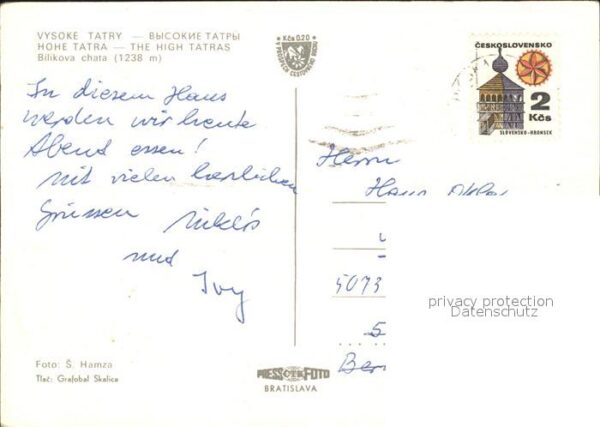 VYSOKE TATRY — ВЫСОКИЕ ТАТРЫ
HOHE TATRA — THE HIGH TATRAS
Bílikova chata (1238 m)
Kčs 0,20
ČESKOSLOVENSKO
2
Kčs
SLOVENSKO-HRONSEK
In diesem Haus
werden wir heute
Abend essen!
Mit vielen herzlichen
Grüssen Miklós
und
Ivy
Herrn
Hans
5073
privacy protection
Datenschutz
Foto: Š. Hamza
Tlač: Grafobal Skalica
PRESSFOTO
BRATISLAVA